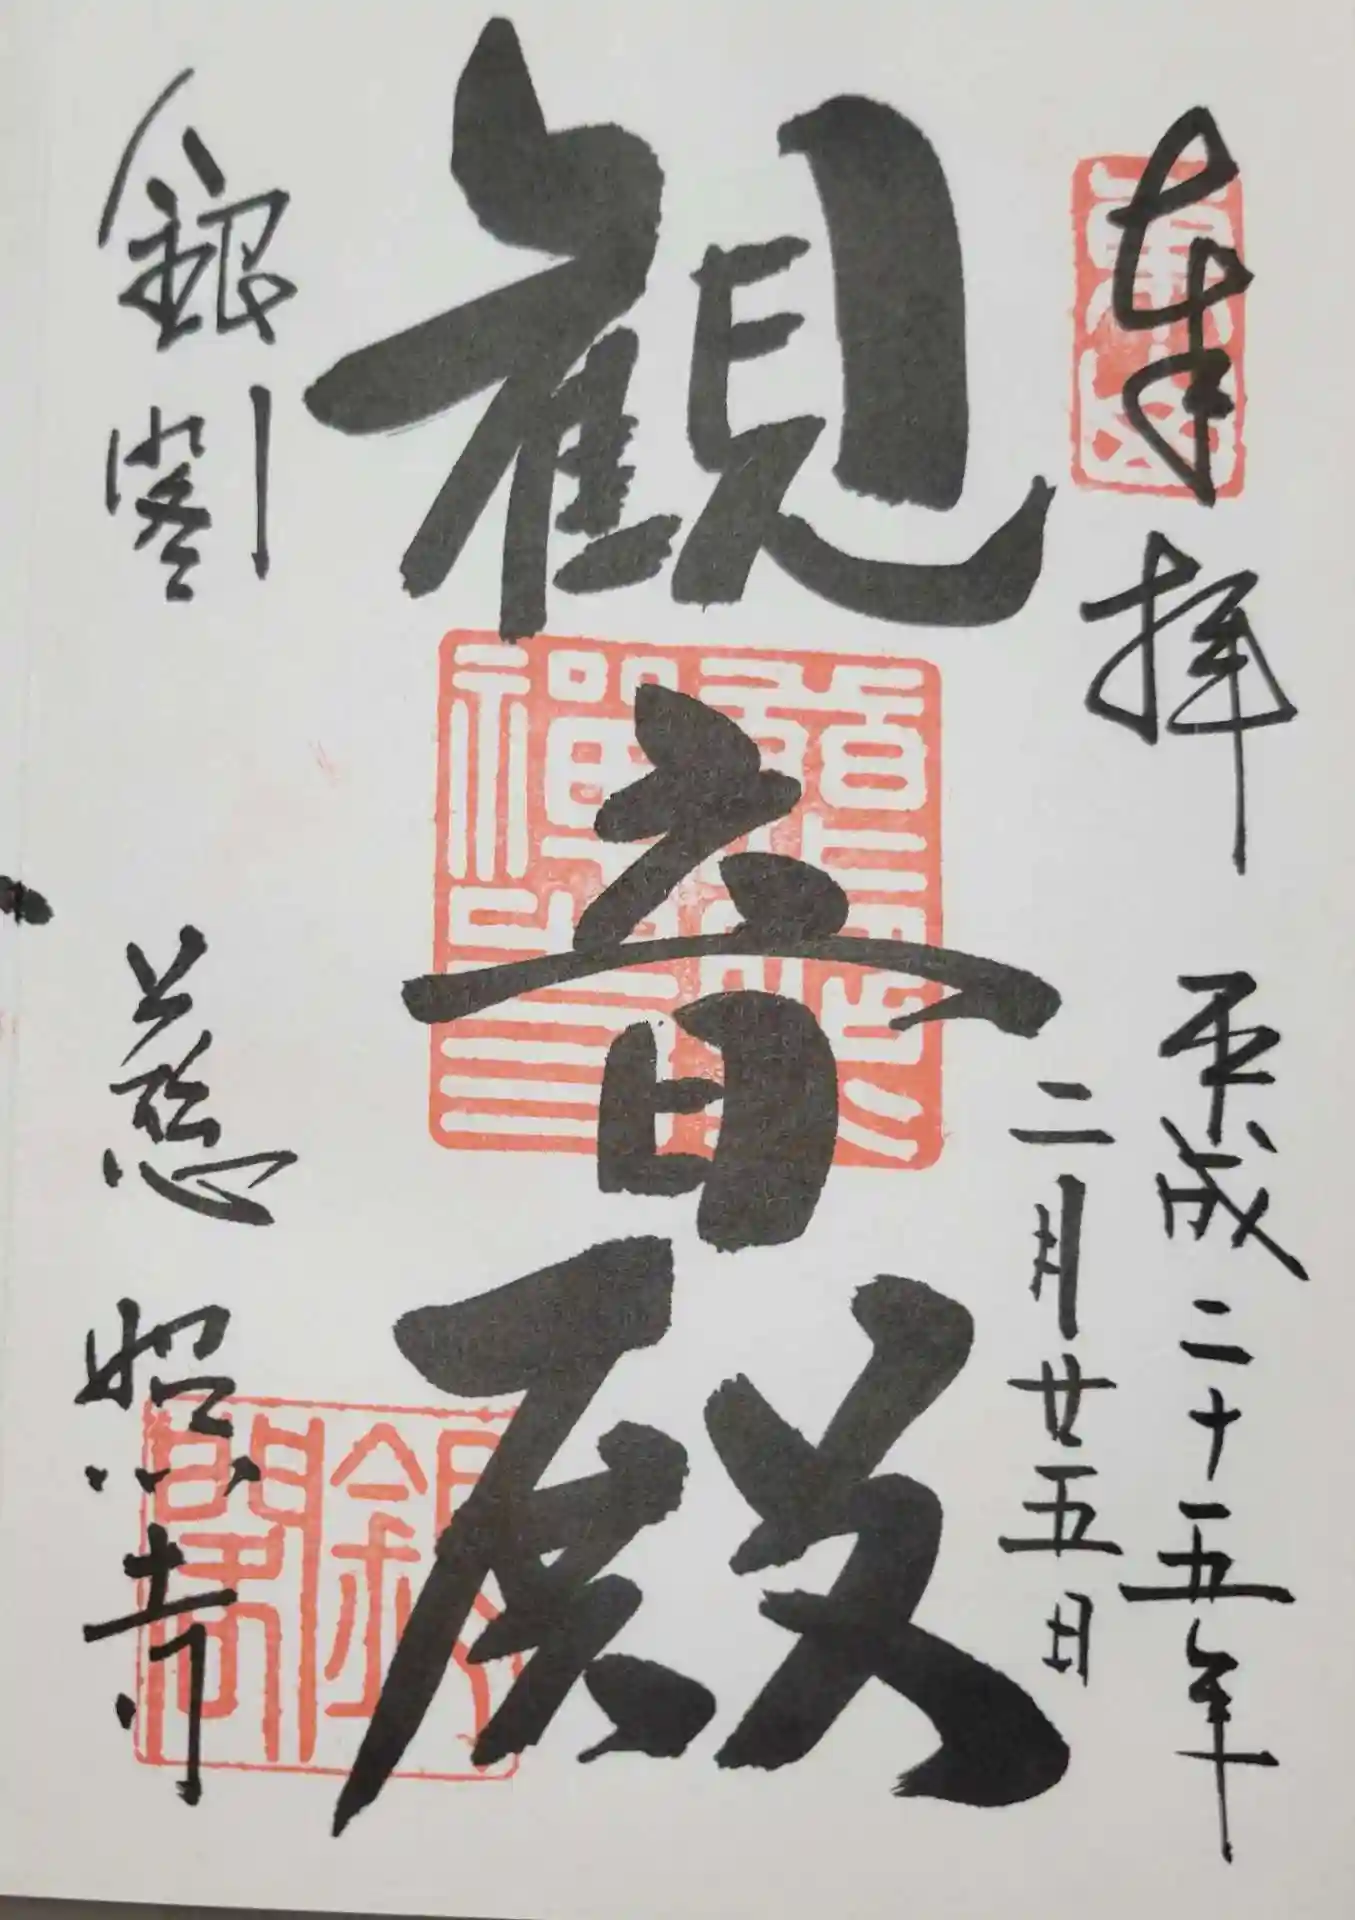 奉拝 平成二十五年
二月廿五日
観音殿
銀閣 慈照寺
東山
銀閣